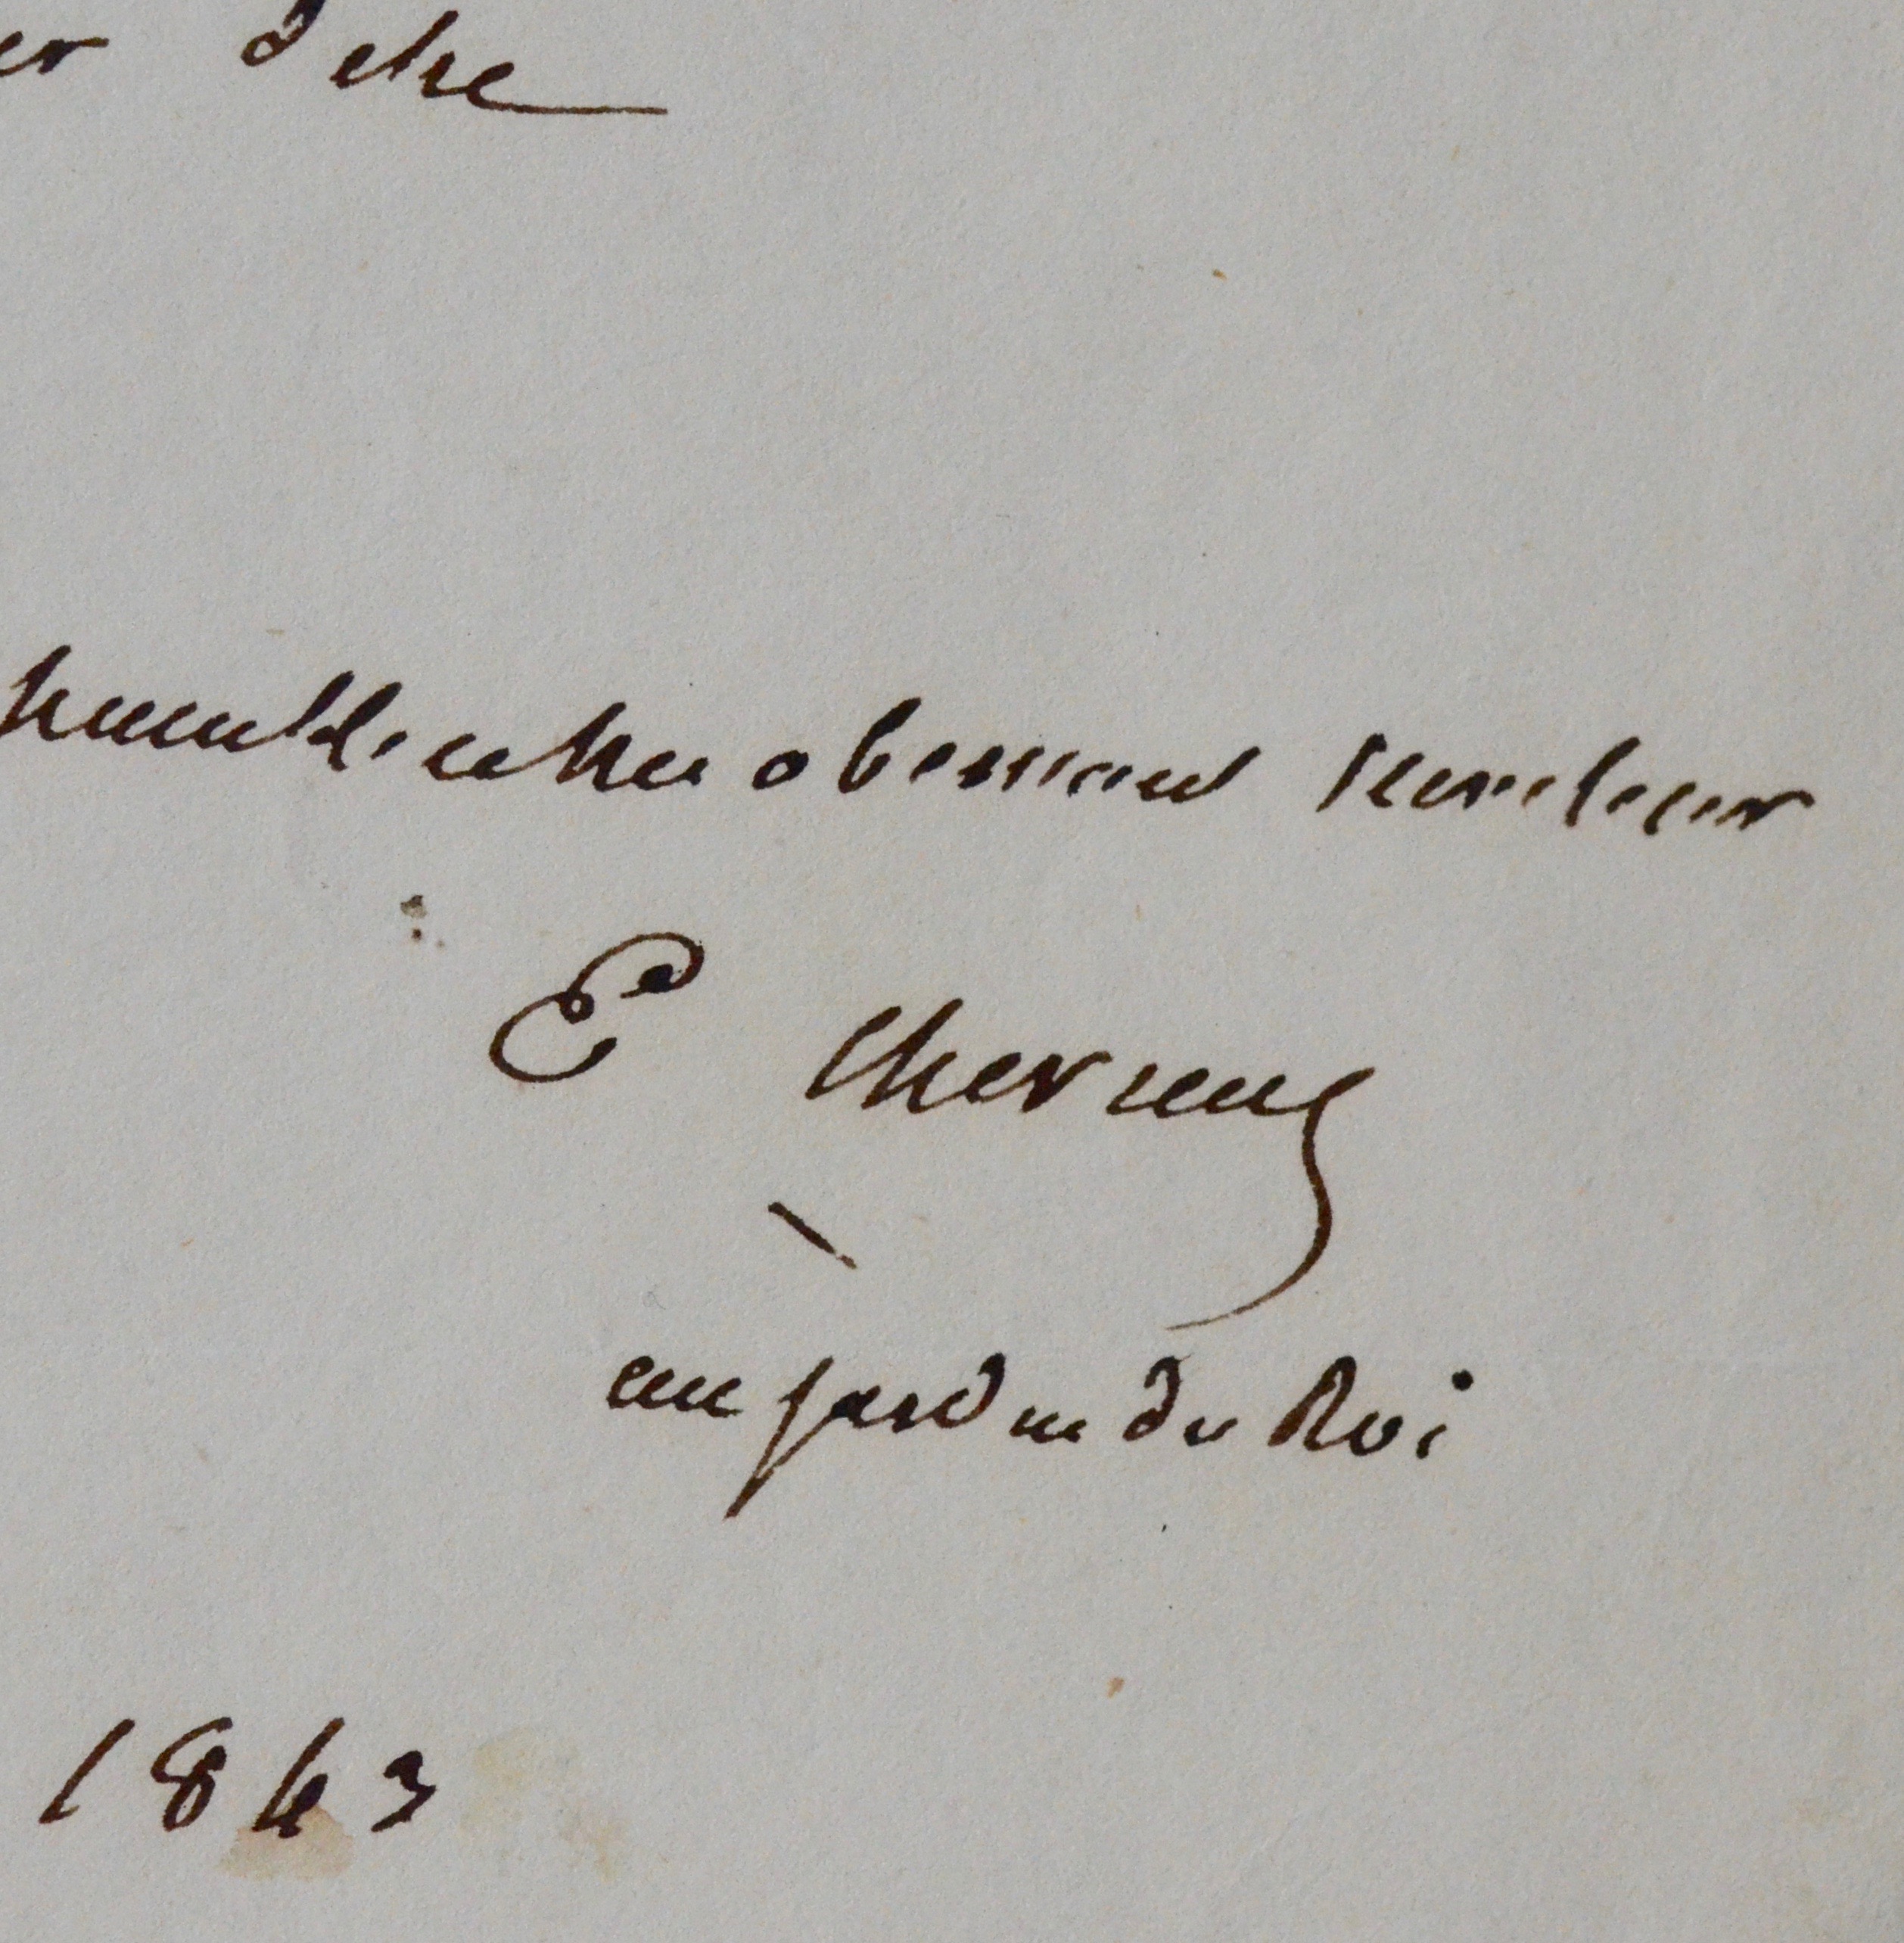 er d'etre
humble et tres obeissant serviteur
E Chevreul
au jardin du Roi
1843